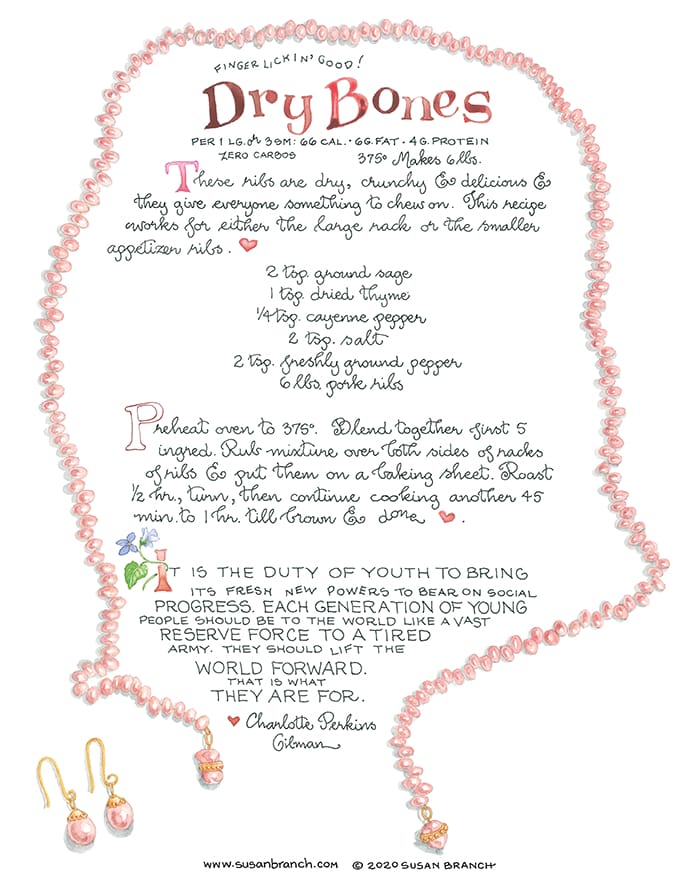 FINGER LICKIN' GOOD!
Dry Bones
PER 1 LG. or 3 SM: 66 CAL. · 6G. FAT · 4G. PROTEIN
ZERO CARBOS 375° Makes 6 lbs.
These ribs are dry, crunchy & delicious &
they give everyone something to chew on. This recipe
works for either the large rack or the smaller
appetizer ribs. ♥
2 tsp. ground sage
1 tsp. dried thyme
1/4 tsp. cayenne pepper
2 tsp. salt
2 tsp. freshly ground pepper
6 lbs. pork ribs
Preheat oven to 375°. Blend together first 5
ingred. Rub mixture over both sides of racks
of ribs & put them on a baking sheet. Roast
1/2 hr., turn, then continue cooking another 45
min. to 1 hr. till brown & done ♥.
IT IS THE DUTY OF YOUTH TO BRING
ITS FRESH NEW POWERS TO BEAR ON SOCIAL
PROGRESS. EACH GENERATION OF YOUNG
PEOPLE SHOULD BE TO THE WORLD LIKE A VAST
RESERVE FORCE TO A TIRED
ARMY. THEY SHOULD LIFT THE
WORLD FORWARD.
THAT IS WHAT
THEY ARE FOR.
♥ Charlotte Perkins
Gilman
www.susanbranch.com © 2020 SUSAN BRANCH